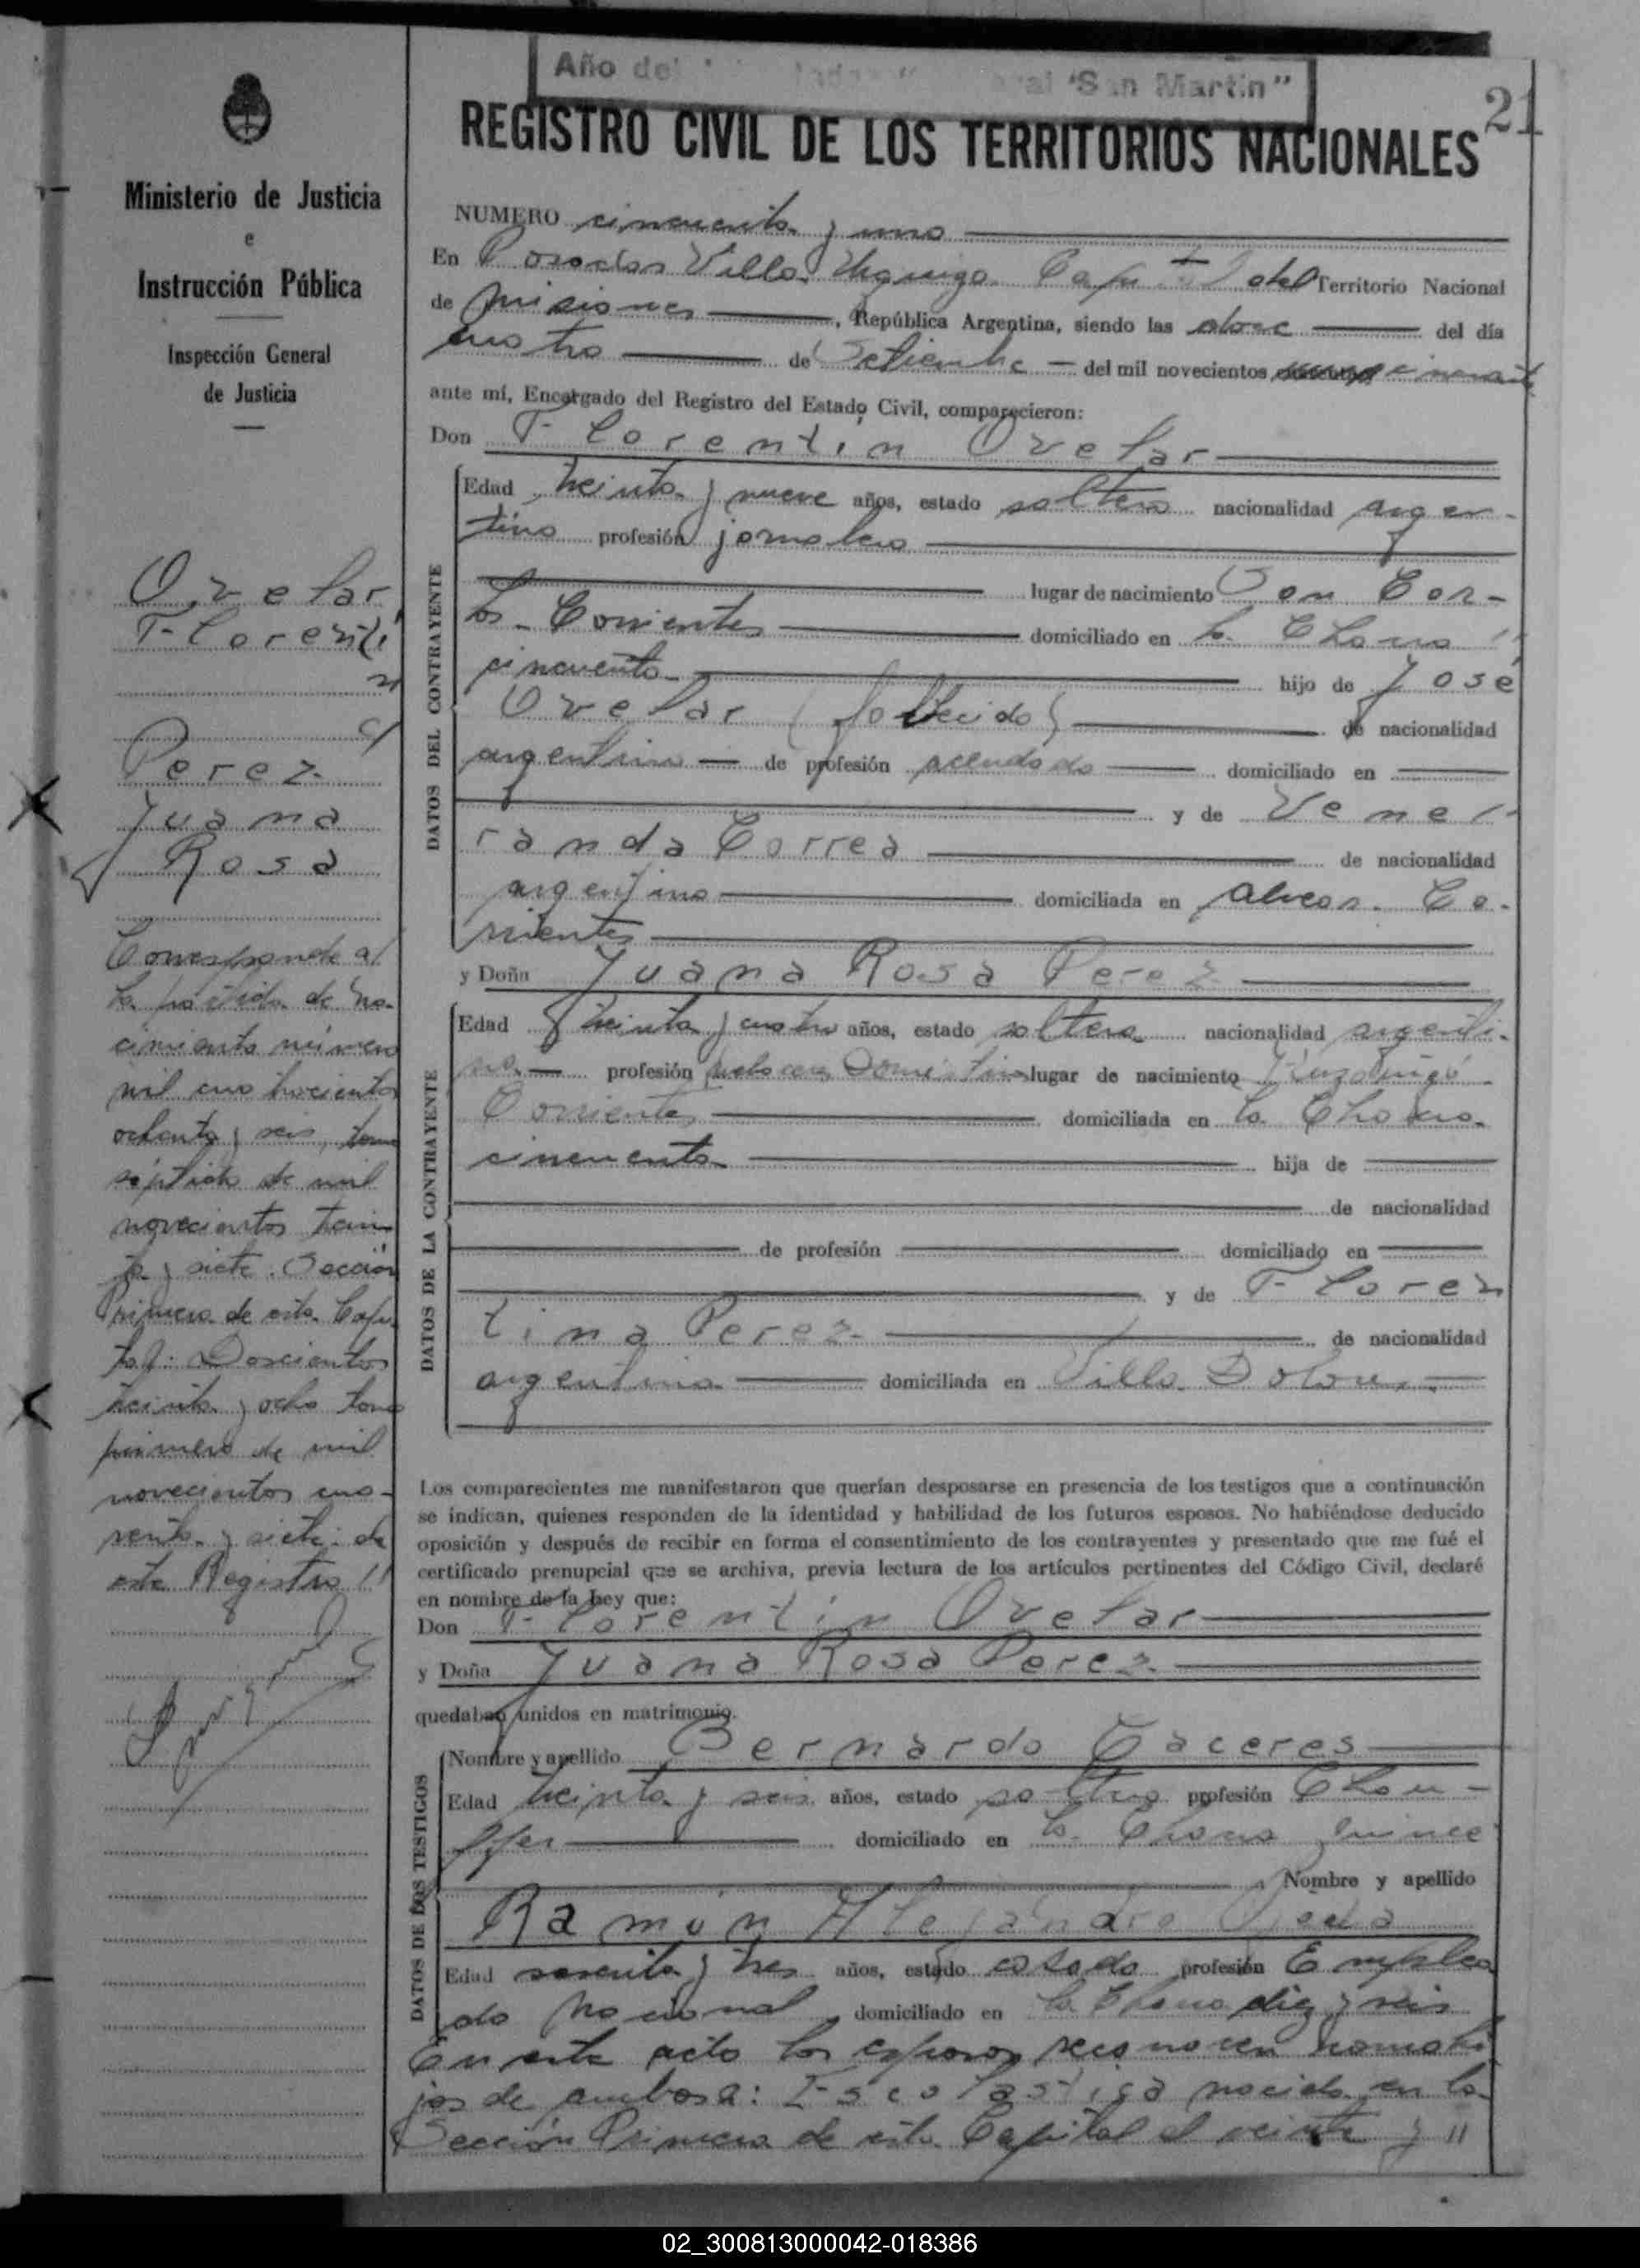 Año del "San Martín"
21
REGISTRO CIVIL DE LOS TERRITORIOS NACIONALES
Ministerio de Justicia
e
Instrucción Pública
Inspección General
de Justicia
Ovelar
Florentí
n
c/
Perez
Juana
Rosa
Corresponde a/
la partida de na-
cimiento número
mil cuatrocientos
ochenta y seis, tomo
séptimo de mil
novecientos trein
ta y siete. Sección
Primera de esta Capi
tal: Doscientos
treinta y ocho tomo
primero de mil
novecientos cua-
renta y siete: de
este Registro
NUMERO cincuenta y uno
En Posadas Villa Urquiza Capital del Territorio Nacional
de Misiones, República Argentina, siendo las doce del día
cuatro de Setiembre del mil novecientos cincuenta
ante mí, Encargado del Registro del Estado Civil, comparecieron:
Don Florentin Ovelar
DATOS DEL CONTRAYENTE
Edad treinta y nueve años, estado soltero nacionalidad argen-
tino profesión jornalero
lugar de nacimiento San Car-
los - Corrientes domiciliado en la Chacra
cincuenta hijo de José
Ovelar (fallecido) de nacionalidad
argentino de profesión acendado domiciliado en
y de Vene
randa Correa de nacionalidad
argentina domiciliada en Alvear. Co-
rrientes
y Doña Juana Rosa Perez
DATOS DE LA CONTRAYENTE
Edad treinta y cuatro años, estado soltera nacionalidad argenti-
na profesión quehaceres Domesticos lugar de nacimiento Ituzaingó
Corrientes domiciliada en la Chacra
cincuenta hija de
de nacionalidad
de profesión domiciliado en
y de Floren
tina Perez de nacionalidad
argentina domiciliada en Villa Dolores
Los comparecientes me manifestaron que querían desposarse en presencia de los testigos que a continuación
se indican, quienes responden de la identidad y habilidad de los futuros esposos. No habiéndose deducido
oposición y después de recibir en forma el consentimiento de los contrayentes y presentado que me fué el
certificado prenupcial que se archiva, previa lectura de los artículos pertinentes del Código Civil, declaré
en nombre de la Ley que:
Don Florentin Ovelar
y Doña Juana Rosa Perez
quedaban unidos en matrimonio.
DATOS DE LOS TESTIGOS
Nombre y apellido Bernardo Caceres
Edad treinta y seis años, estado soltero profesión Chau-
ffer domiciliado en la Chacra quince
Nombre y apellido
Ramón Alejandro Ojeda
Edad sesenta y tres años, estado casado profesión Emplea
do Nacional domiciliado en la Chacra diez y seis
En este acto los esposos reconocen como hi
jos de ambos a: Escolastica nacida en la
Sección Primera de esta Capital el veinte y
02_300813000042-018386